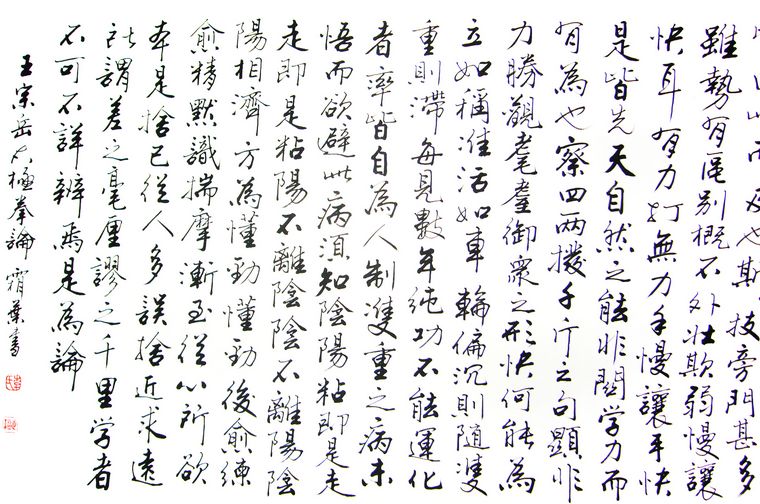 此而及也斯技旁門甚多
雖勢有區別概不外壯欺弱慢讓
快耳有力打無力手慢讓手快
是皆先天自然之能非關学力而
有為也察四兩撥千斤之句顯非
力勝觀耄耋御衆之形快何能為
立如稱准活如車輪偏沉則随雙
重則滯每見數年純功不能運化
者率皆自為人制雙重之病未
悟而欲避此病須知陰陽粘即是走
走即是粘陽不離陰陰不離陽陰
陽相濟方為懂勁懂勁後愈練
愈精默識揣摩漸至從心所欲
本是捨己從人多誤捨近求遠
所謂差之毫厘謬之千里学者
不可不詳辨焉是為論
王宗岳太極拳論 霜葉書